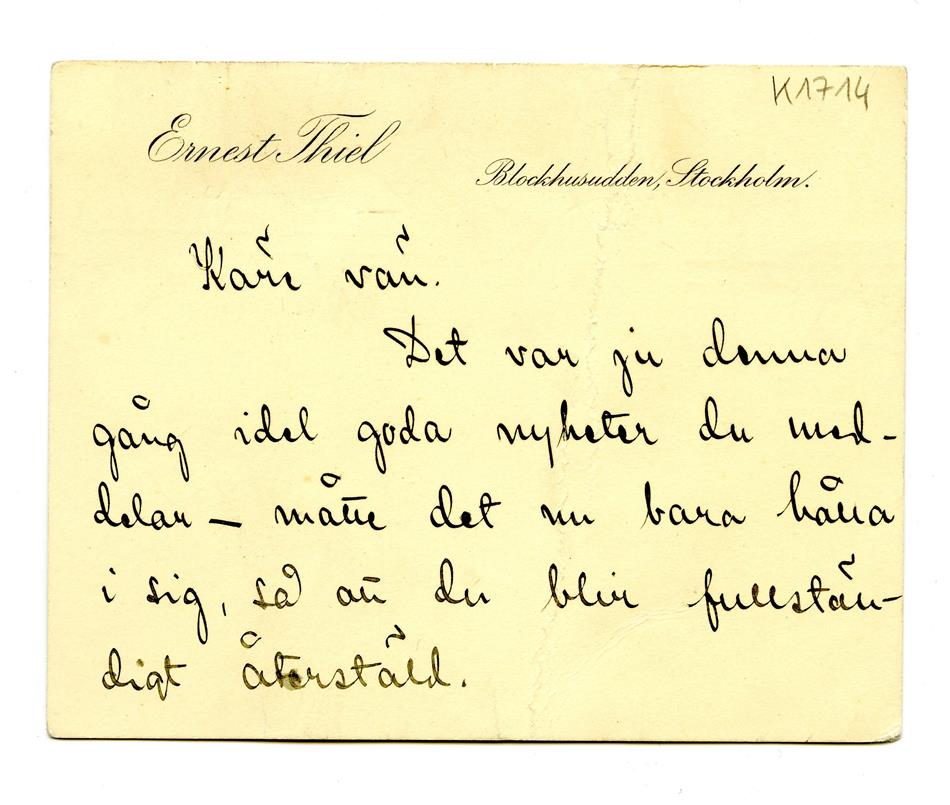 K1714
Ernest Thiel
Blockhusudden, Stockholm.
Käre vän.
Det var ju denna
gång idel goda nyheter du med-
delar – måtte det nu bara hålla
i sig, så att du blir fullstän-
digt återstäld.